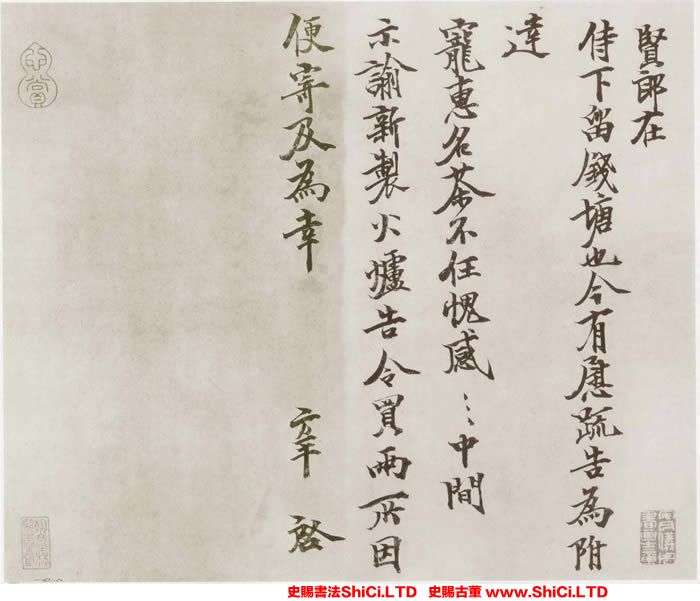 賢郎在
侍下留錢塘也今有慰疏告為附
達
寵惠名茶不任愧感〻中間
示諭新製火爐告令買兩所因
便寄及為幸
卞 啓
史賜書法ShiCi.LTD 史賜古董 www.ShiCi.LTD